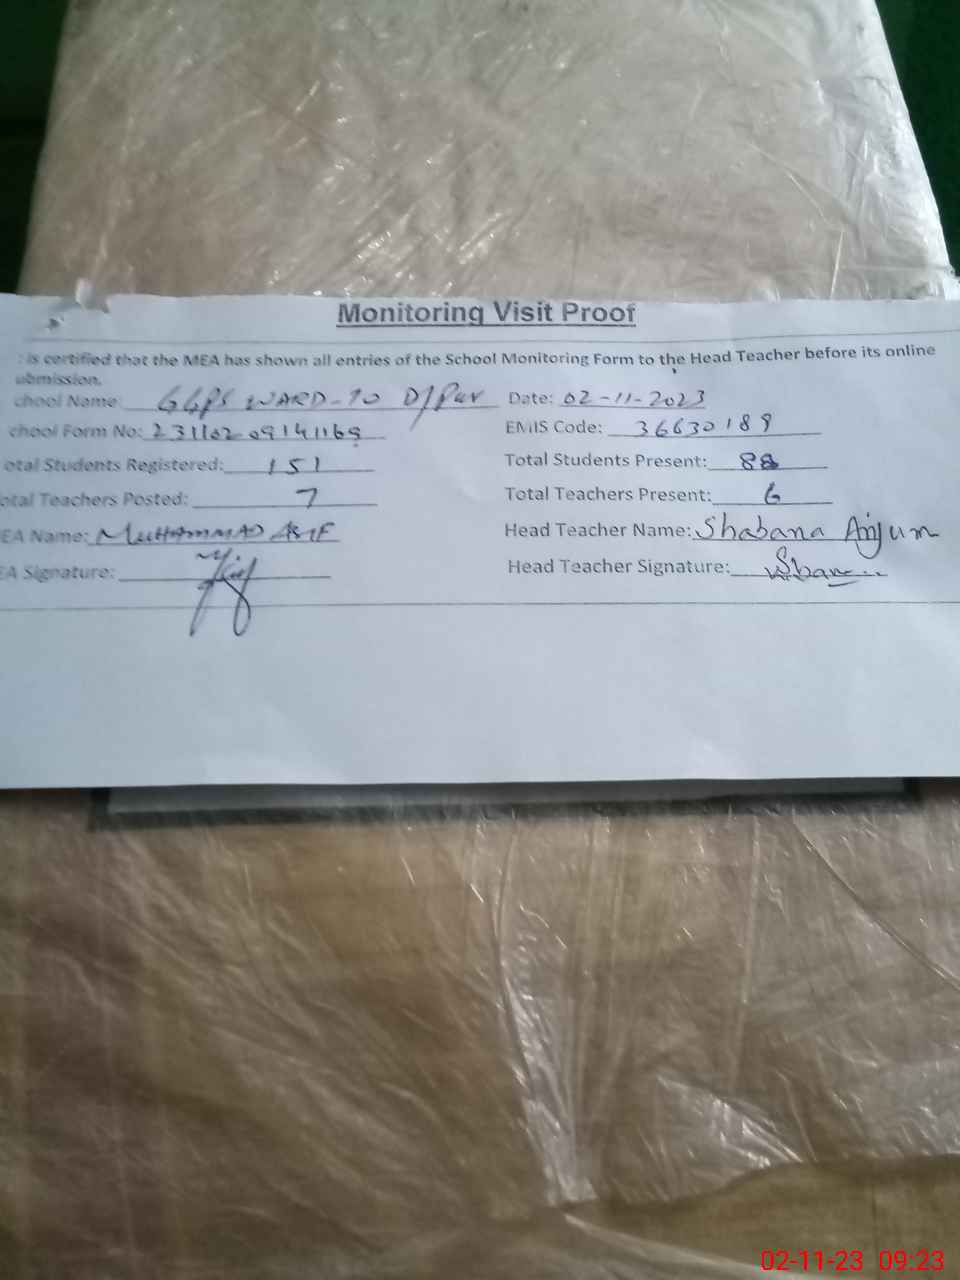 Monitoring Visit Proof
: is certified that the MEA has shown all entries of the School Monitoring Form to the Head Teacher before its online
ubmission.
chool Name: GGPS WARD-10 D/Pur Date: 02-11-2023
chool Form No: 23110209141169 EMIS Code: 36630189
otal Students Registered: 151 Total Students Present: 88
otal Teachers Posted: 7 Total Teachers Present: 6
EA Name: MUHAMMAD ASIF Head Teacher Name: Shabana Anjum
EA Signature: Head Teacher Signature:
02-11-23 09:23